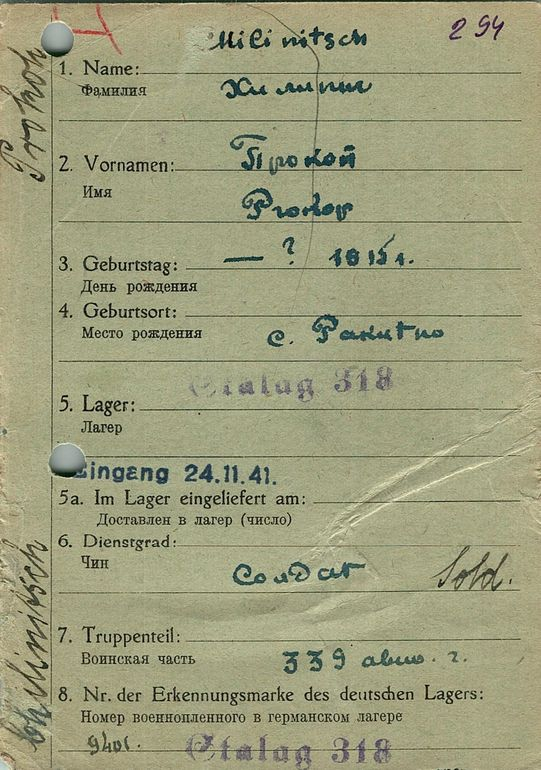 294
Milinitsch
1. Name:
Фамилия
2. Vornamen: Прокоп
Имя
Prokop
3. Geburtstag: — ? 1915 г.
День рождения
4. Geburtsort:
Место рождения с. Ракитно
Stalag 318
5. Lager:
Лагер
Eingang 24.11.41.
5a. Im Lager eingeliefert am:
Доставлен в лагер (число)
6. Dienstgrad:
Чин Солдат Sold.
7. Truppenteil:
Воинская часть 339
8. Nr. der Erkennungsmarke des deutschen Lagers:
Номер военнопленного в германском лагере
9401.
Stalag 318
Chilinitsch
Prokop